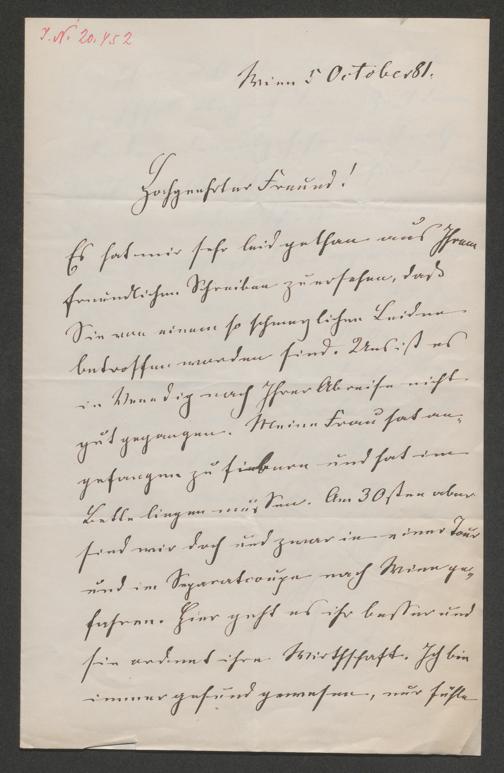 J. N. 20.452
Wien 5 October 81.
Hochgeehrter Freund!
Es hat mir sehr leid gethan aus Ihrem
freundlichen Schreiben zu ersehen, daß
Sie von einem so schmerzlichen Leiden
betroffen worden sind. Uns ist es
in Venedig nach Ihrer Abreise nicht
gut gegangen. Meine Frau hat an-
gefangen zu fiebern und hat im
Bette liegen müssen. Am 30sten aber
sind wir doch und zwar in einer Tour
und im Separatcoupe nach Wien ge-
fahren. Hier geht es ihr besser und
sie ordnet ihre Wirthschaft. Ich bin
immer gesund gewesen, nur fühle